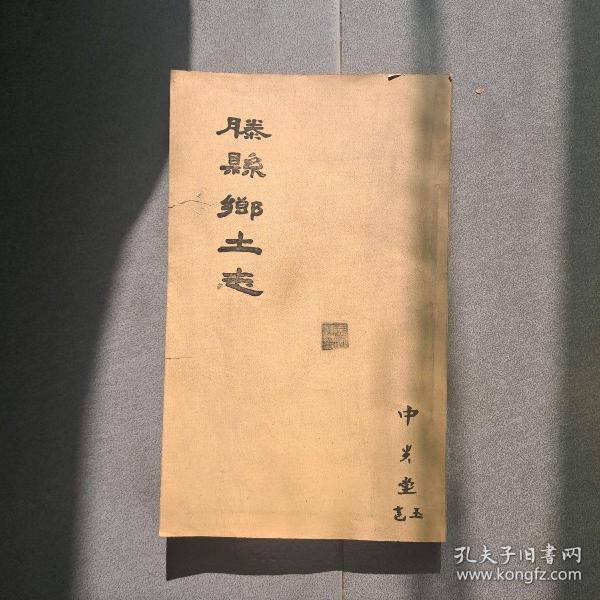 滕縣鄉土志
中炎堂
玉
孔夫子旧书网
www.kongfz.com